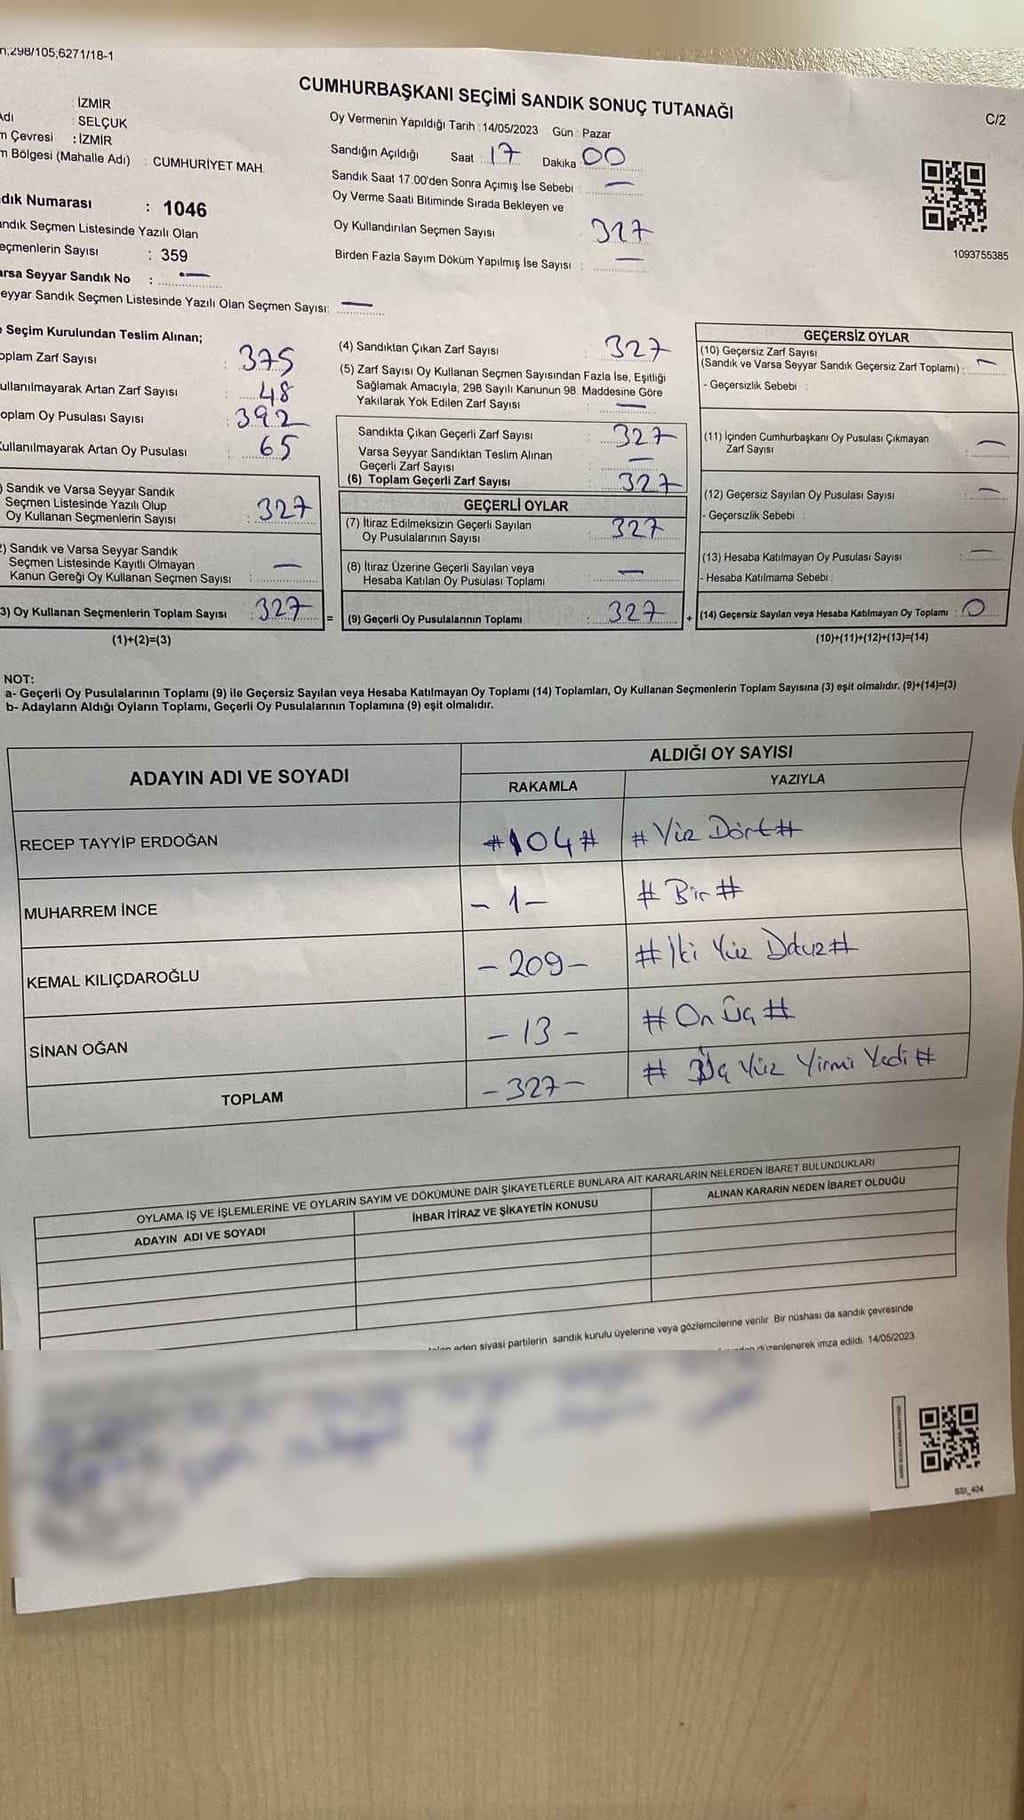 298/105;6271/18-1
CUMHURBAŞKANI SEÇİMİ SANDIK SONUÇ TUTANAĞI
C/2
: İZMİR
: SELÇUK
Çevresi : İZMİR
Bölgesi (Mahalle Adı) : CUMHURİYET MAH.
Numarası : 1046
Seçmen Listesinde Yazılı Olan
Sayısı : 359
Seyyar Sandık No : —
Seyyar Sandık Seçmen Listesinde Yazılı Olan Seçmen Sayısı: —
Oy Vermenin Yapıldığı Tarih : 14/05/2023 Gün : Pazar
Sandığın Açıldığı Saat : 17 Dakika : 00
Sandık Saat 17.00'den Sonra Açımış İse Sebebi : —
Oy Verme Saati Bitiminde Sırada Bekleyen ve
Oy Kullandırılan Seçmen Sayısı : 327
Birden Fazla Sayım Döküm Yapılmış İse Sayısı : —
1093755385
Seçim Kurulundan Teslim Alınan;
Zarf Sayısı : 375
Artan Zarf Sayısı : 48
Oy Pusulası Sayısı : 392
Artan Oy Pusulası : 65
Sandık ve Varsa Seyyar Sandık
Seçmen Listesinde Yazılı Olup
Oy Kullanan Seçmenlerin Sayısı : 327
2) Sandık ve Varsa Seyyar Sandık
Seçmen Listesinde Kayıtlı Olmayan
Kanun Gereği Oy Kullanan Seçmen Sayısı : —
3) Oy Kullanan Seçmenlerin Toplam Sayısı : 327 =
(1)+(2)=(3)
(4) Sandıktan Çıkan Zarf Sayısı : 327
(5) Zarf Sayısı Oy Kullanan Seçmen Sayısından Fazla İse, Eşitliği
Sağlamak Amacıyla; 298 Sayılı Kanunun 98. Maddesine Göre
Yakılarak Yok Edilen Zarf Sayısı : —
Sandıkta Çıkan Geçerli Zarf Sayısı : 327
Varsa Seyyar Sandıktan Teslim Alınan
Geçerli Zarf Sayısı : —
(6) Toplam Geçerli Zarf Sayısı : 327
GEÇERLİ OYLAR
(7) İtiraz Edilmeksizin Geçerli Sayılan
Oy Pusulalarının Sayısı : 327
(8) İtiraz Üzerine Geçerli Sayılan veya
Hesaba Katılan Oy Pusulası Toplamı : —
(9) Geçerli Oy Pusulalarının Toplamı : 327 +
GEÇERSİZ OYLAR
(10) Geçersiz Zarf Sayısı
(Sandık ve Varsa Seyyar Sandık Geçersiz Zarf Toplamı) : —
- Geçersizlik Sebebi :
(11) İçinden Cumhurbaşkanı Oy Pusulası Çıkmayan
Zarf Sayısı : —
(12) Geçersiz Sayılan Oy Pusulası Sayısı : —
- Geçersizlik Sebebi :
(13) Hesaba Katılmayan Oy Pusulası Sayısı : —
- Hesaba Katılmama Sebebi :
(14) Geçersiz Sayılan veya Hesaba Katılmayan Oy Toplamı : 0
(10)+(11)+(12)+(13)=(14)
NOT:
a- Geçerli Oy Pusulalarının Toplamı (9) ile Geçersiz Sayılan veya Hesaba Katılmayan Oy Toplamı (14) Toplamları, Oy Kullanan Seçmenlerin Toplam Sayısına (3) eşit olmalıdır. (9)+(14)=(3)
b- Adayların Aldığı Oyların Toplamı, Geçerli Oy Pusulalarının Toplamına (9) eşit olmalıdır.
ADAYIN ADI VE SOYADI
ALDIĞI OY SAYISI
RAKAMLA YAZIYLA
RECEP TAYYİP ERDOĞAN #104# # Yüz Dört #
MUHARREM İNCE - 1 - # Bir #
KEMAL KILIÇDAROĞLU - 209 - # İki Yüz Dokuz #
SİNAN OĞAN - 13 - # On Üç #
TOPLAM - 327 - # Üç Yüz Yirmi Yedi #
OYLAMA İŞ VE İŞLEMLERİNE VE OYLARIN SAYIM VE DÖKÜMÜNE DAİR ŞİKAYETLERLE BUNLARA AİT KARARLARIN NELERDEN İBARET BULUNDUKLARI
ADAYIN ADI VE SOYADI İHBAR İTİRAZ VE ŞİKAYETİN KONUSU ALINAN KARARIN NEDEN İBARET OLDUĞU
eden siyasi partilerin sandık kurulu üyelerine veya gözlemcilerine verilir. Bir nüshası da sandık çevresinde
düzenlenerek imza edildi. 14/05/2023
SSI_404